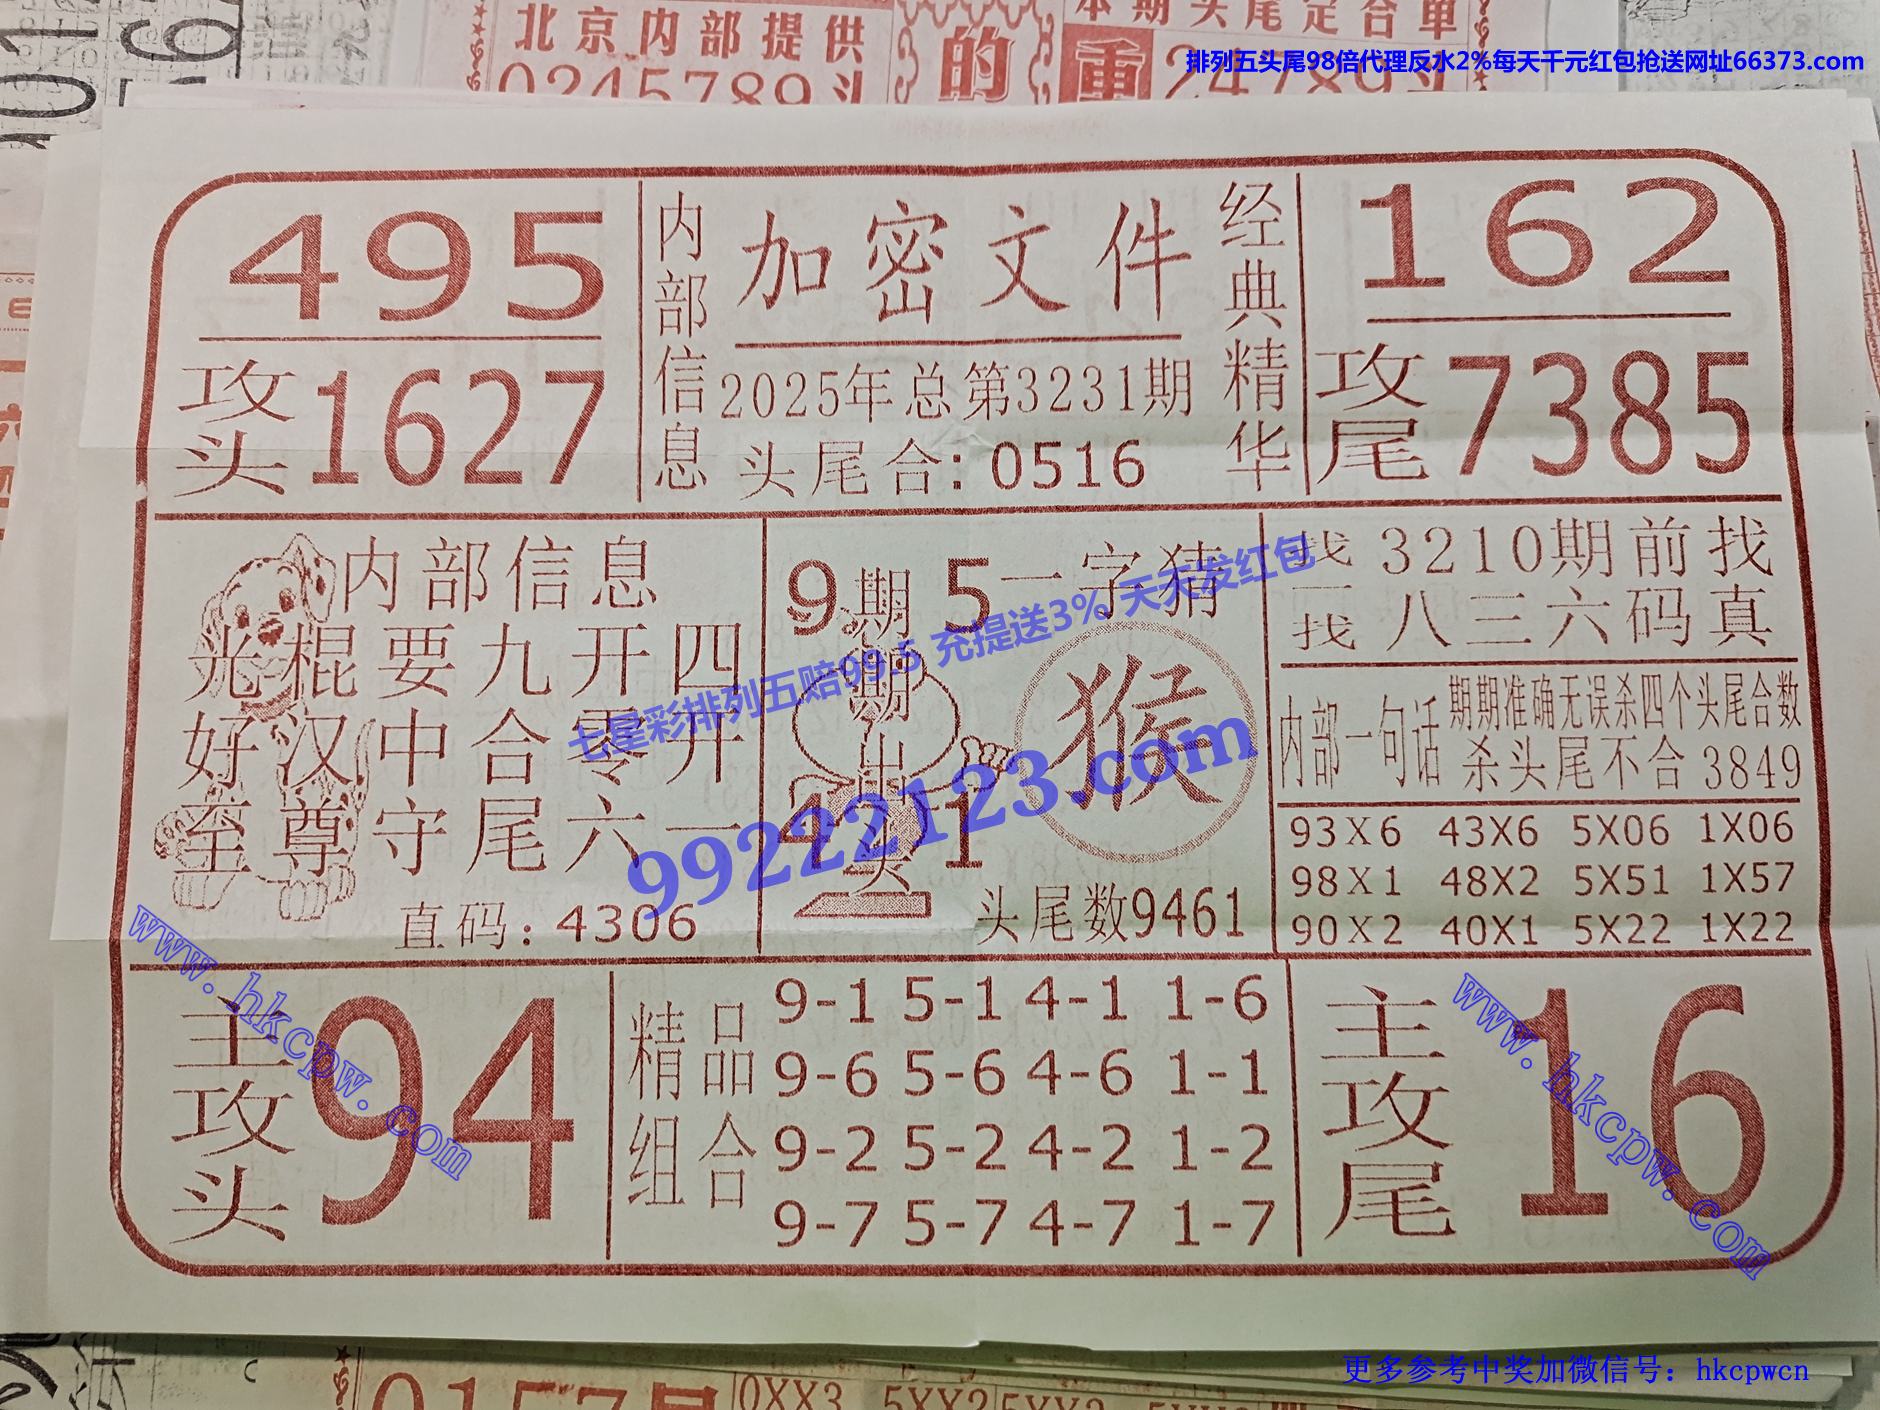 北京内部提供
0245789头
的
本期头尾定合单
重
24789头
排列五头尾98倍代理反水2%每天千元红包抢送网址66373.com
495
攻头1627
内部信息
加密文件
2025年总第3231期
头尾合:0516
经典精华
162
攻尾7385
内部信息
光棍要九开四
好汉中合零开
至尊守尾六一
直码:4306
9 5
期期出头
4 1
一字猜
猴
头尾数9461
找一找
3210期前找
八三六码真
内部一句话
期期准确无误杀四个头尾合数
杀头尾不合3849
93X6 43X6 5X06 1X06
98X1 48X2 5X51 1X57
90X2 40X1 5X22 1X22
七星彩排列五赔99.5 充提送3% 天天发红包
99222123.com
主攻头
94
精品组合
9-1 5-1 4-1 1-6
9-6 5-6 4-6 1-1
9-2 5-2 4-2 1-2
9-7 5-7 4-7 1-7
主攻尾
16
www.hkcpw.com
www.hkcpw.com
更多参考中奖加微信号：hkcpwcn
0157
0XX3
5XX2